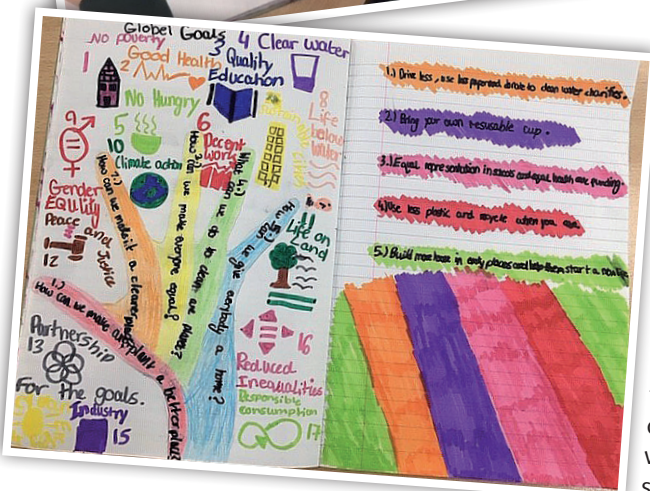 Globel Goals
No poverty
1
2
Good Health
3
Quality
Education
4 Clear Water
No Hungry
5
6
Decent
work
Sustainable cities
8
Life
below
water
10
Climate action
Gender
Equility
Peace and
Justice
12
11
Life on
Land
Partnership
13
For the goals.
Industry
15
16
Reduced
Inequalities
Responsible
consumption
17
1.) How can we make are plant a better place
2.) How can we make it a cleaner place
3.) How can we make everyone equal?
What can we do to clean are planet?
How can we give everybody a home?
1.) Drive less, use less paper and donate to clean water charities.
2.) Bring your own resusable cup.
3.) Equal representation in schools and equal health care funding.
4.) Use less plastic and recycle when you can.
5.) Build more houses in empty places and help them start a new life